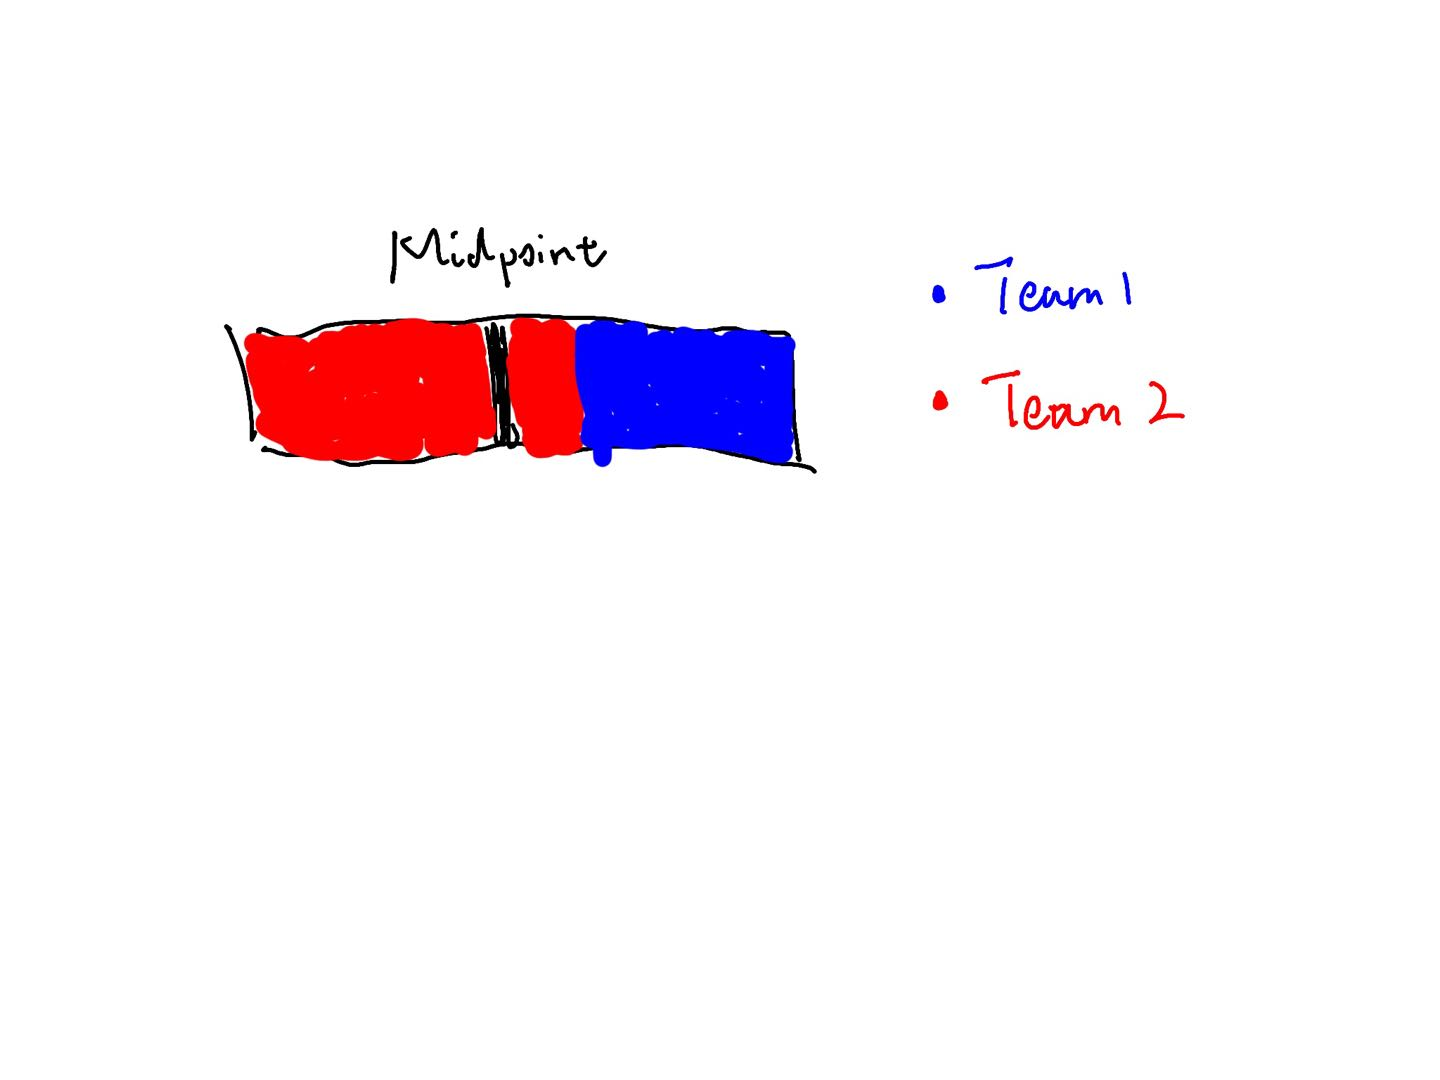 Midpoint
• Team 1
• Team 2